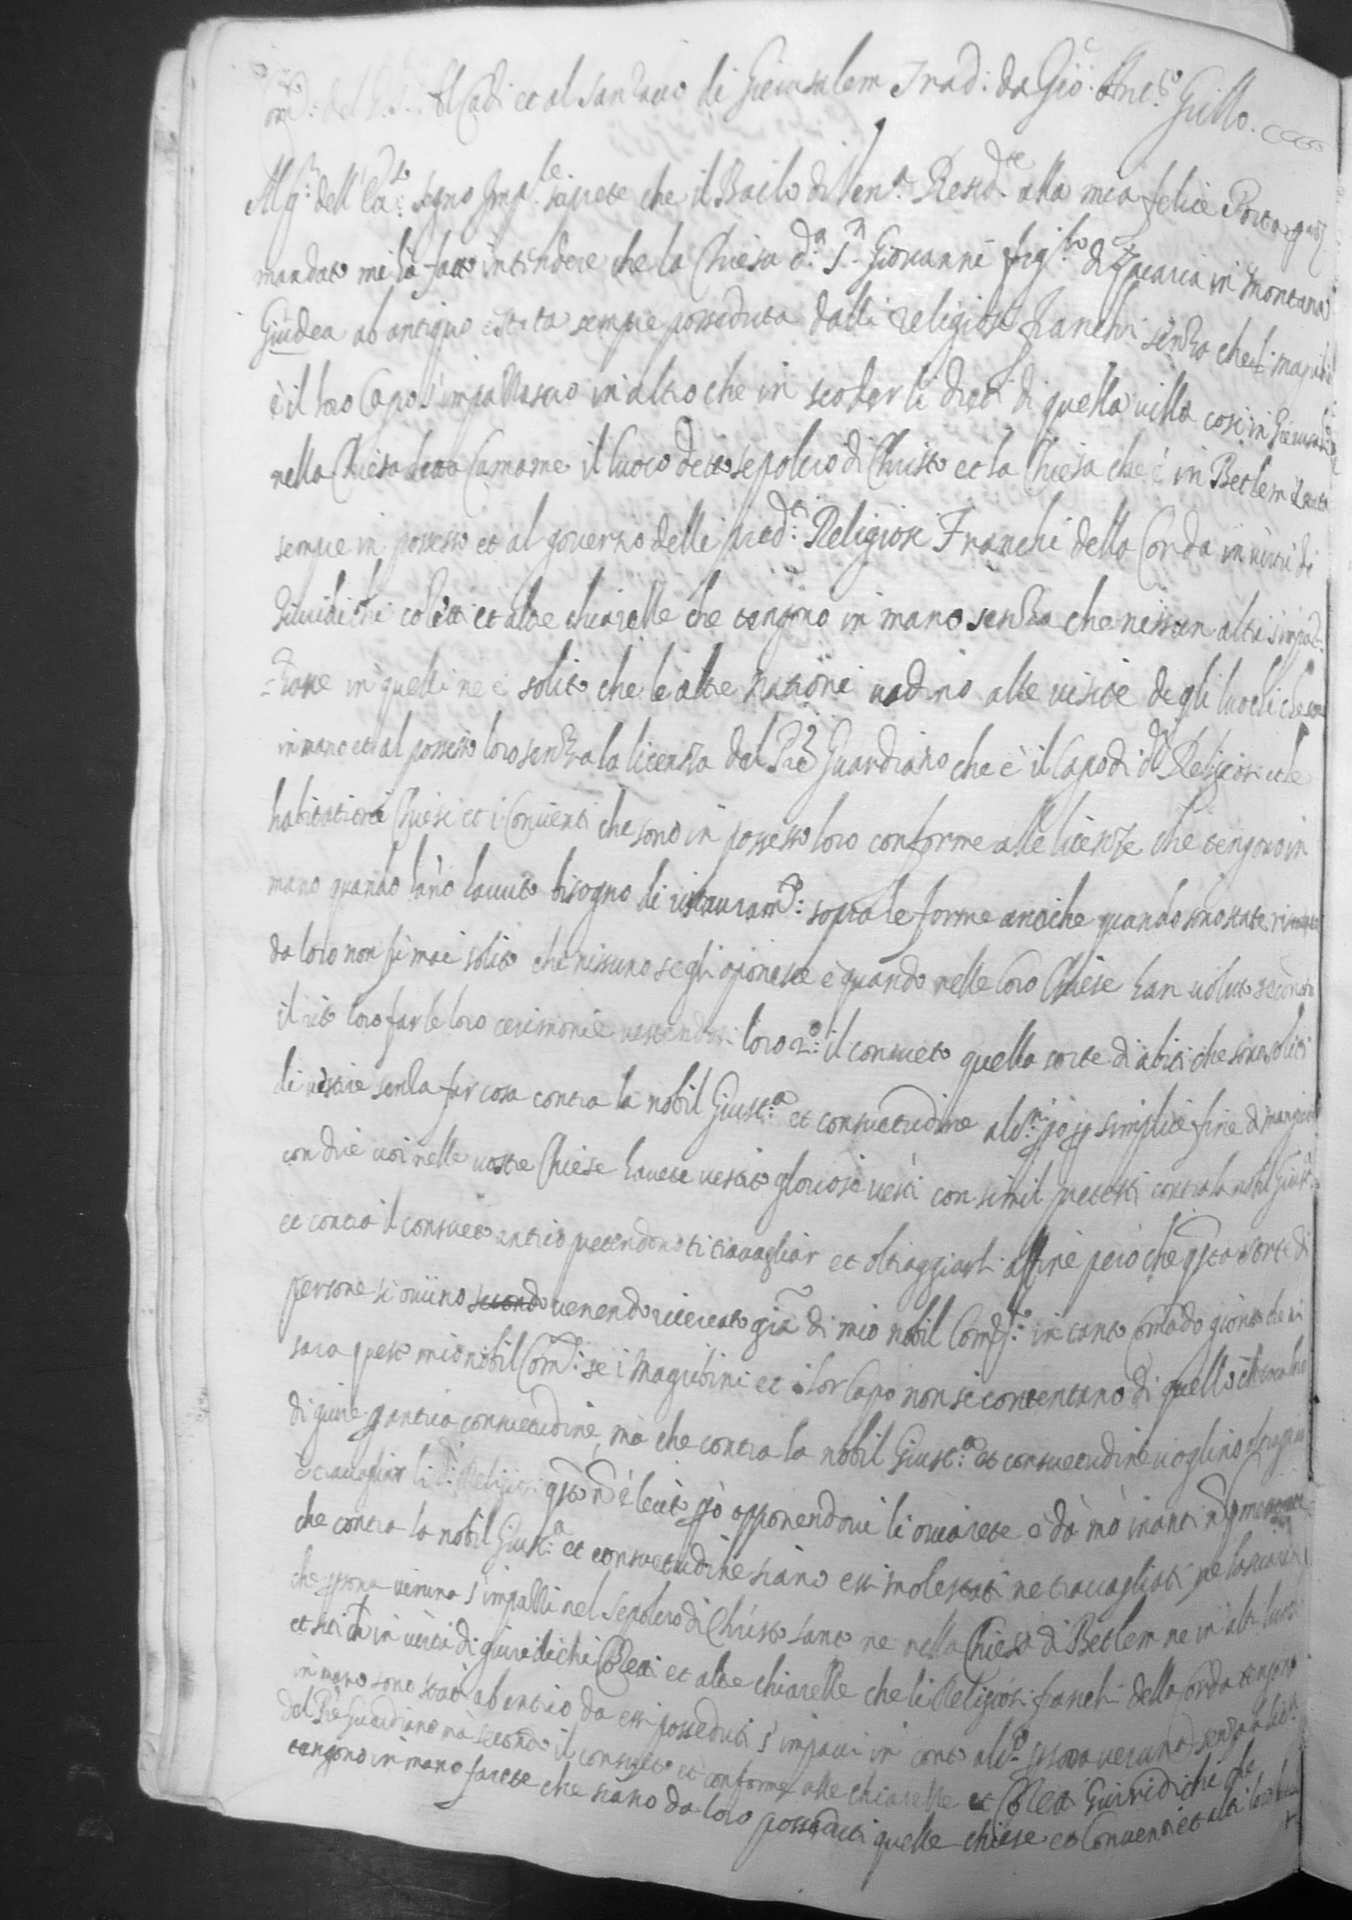 Com.to: del G. S. Al Cadi et al Sanzacco di Gierusalem Trad: da Gio: Ant.o Grillo.
All'g.r dell' ecc.so segno Imp.le saprete che il Bailo di Ven.a Resid.te alla mia felice Porta
mandato mi ha fatto intendere che la Chiesa d.a S.n Giovanni fig.lo di Zacaria in Montana
Giudea ab antiquo è stata sempre posseduta dalli religiosi franchi senza che li magribini
è il loro Capo s'impaciassero in altro che in scoder li dretti di quella villa cosi in Gierusal.
nella Chiesa detta Camame il luoco detto sepolcro di Christo et la Chiesa che è in Betlem
sempre in possesso et al governo delli pred.ti Religiosi Franchi della Corda in virtù di
Giuridichi coletti et altre chiarelle che tengono in mano senza che nissun altri s'impac-
-ciasse in quelli ne è solito che le altre nationi vadino alle visite degli luochi che sono
in mano et al possesso loro senza la licenza del P.re Guardiano che è il Capo di d.ti Religiosi et le
habitationi Chiese et i Conventi che sono in possesso loro conforme alle licenze che tengono in
mano quando hano havuto bisogno di ristauram.to: sopra le forme antiche quando sono state
da loro non fù mai solito che nissuno se gli oponesse è quando nelle loro Chiese han voluto secondo
il rito loro far le loro cerimonie vestendosi loro s.o: il consueto quella sorte d'abiti che sono soliti
di vestire senza far cosa contra la nobil Giust.a et consuetudine alc.ni però p simplice fine di mangiarli
con dire voi nelle vostre Chiese havete vestito gloriose vesti con simil pretesti contra la nobil Giust.a
et contra il consueto antico pretendono ti travagliar et oltraggiarli affine però che q.sta sorte di
persone si oviino venendo ricercato gia di mio nobil Com.to: in tanto Com.ando gionto che vi
sara questo mio nobil Com.to: se i Magribini et il lor Capo non si contentano di quello
di giure p antica consuetudine, mà che contra la nobil Giust.a et consuetudine voglino
è travagliar li d.ti Religiosi q.sto nõ è lecito p.ò opponendovi li oviarete è dà mò inanti nõ
che contra la nobil Giust.a et consuetudine siano essi molestati ne travagliati, ne lasciarete
che p.sona veruna s'impacci nel Sepolcro di Christo santo ne nella Chiesa di Betlem ne in altri luochi
et siti ch'in virtù di giuridichi Coletti et altre chiarelle che li Religiosi franchi della Corda tengono
in mano sono stati ab antico da essi posseduti s'impacci in conto alc.o p.sona veruna senza
del P.re Guardiano mà secondo il consueto et conforme alle chiarelle et Coletti Giuridichi che
tengono in mano farete che siano da loro posseduti quelle chiese et Conventi et altri